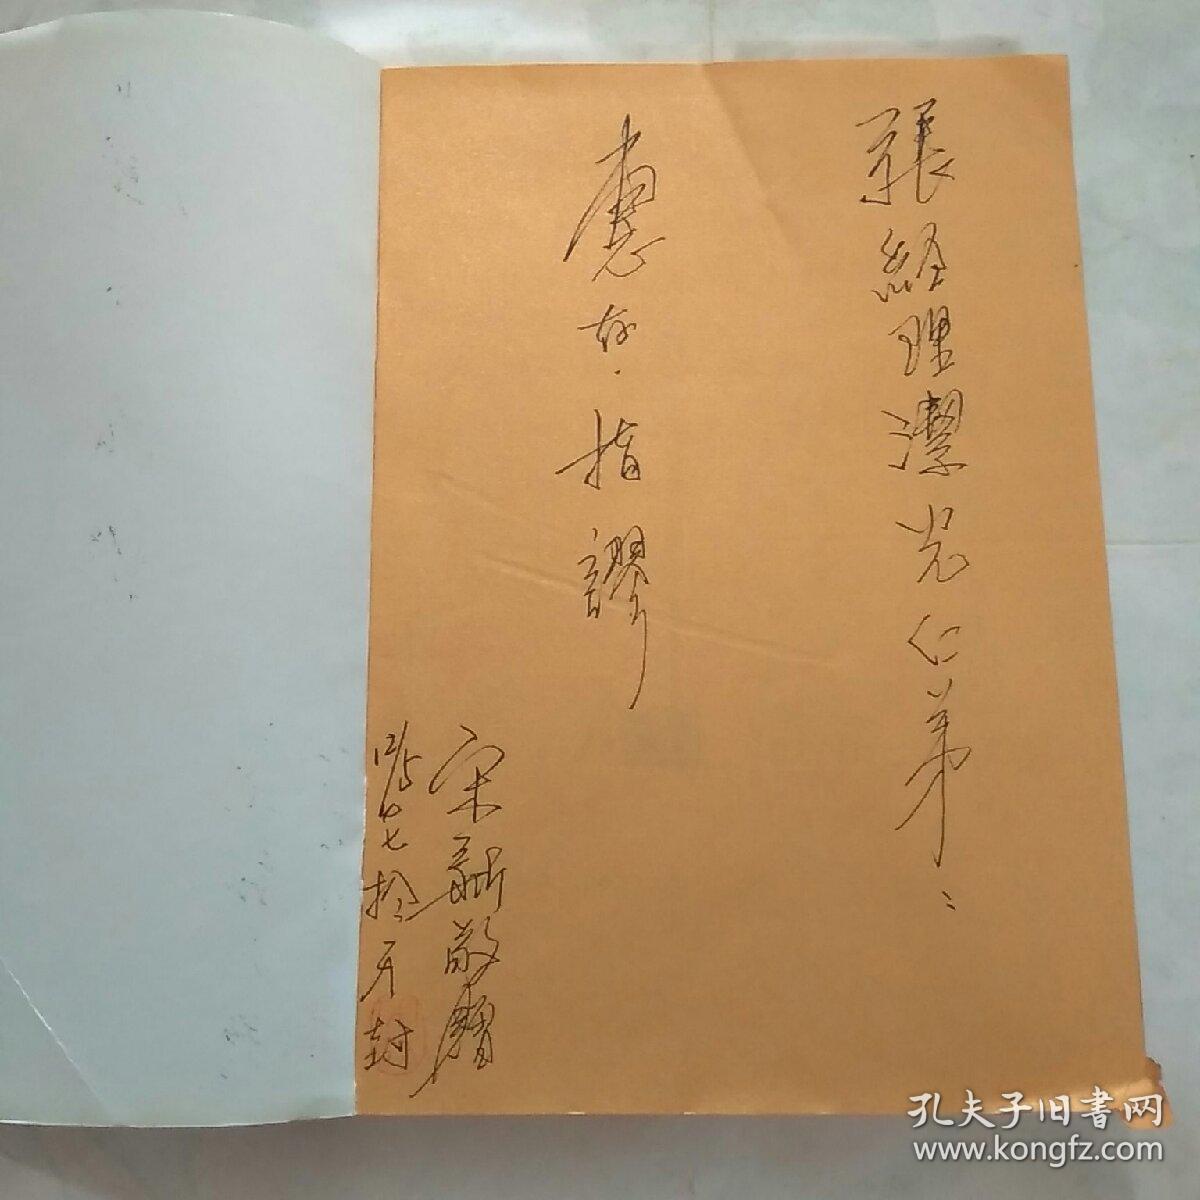 張經理潔光仁弟：
惠存·指謬
宋新敬贈
於开封
孔夫子旧書网
www.kongfz.com